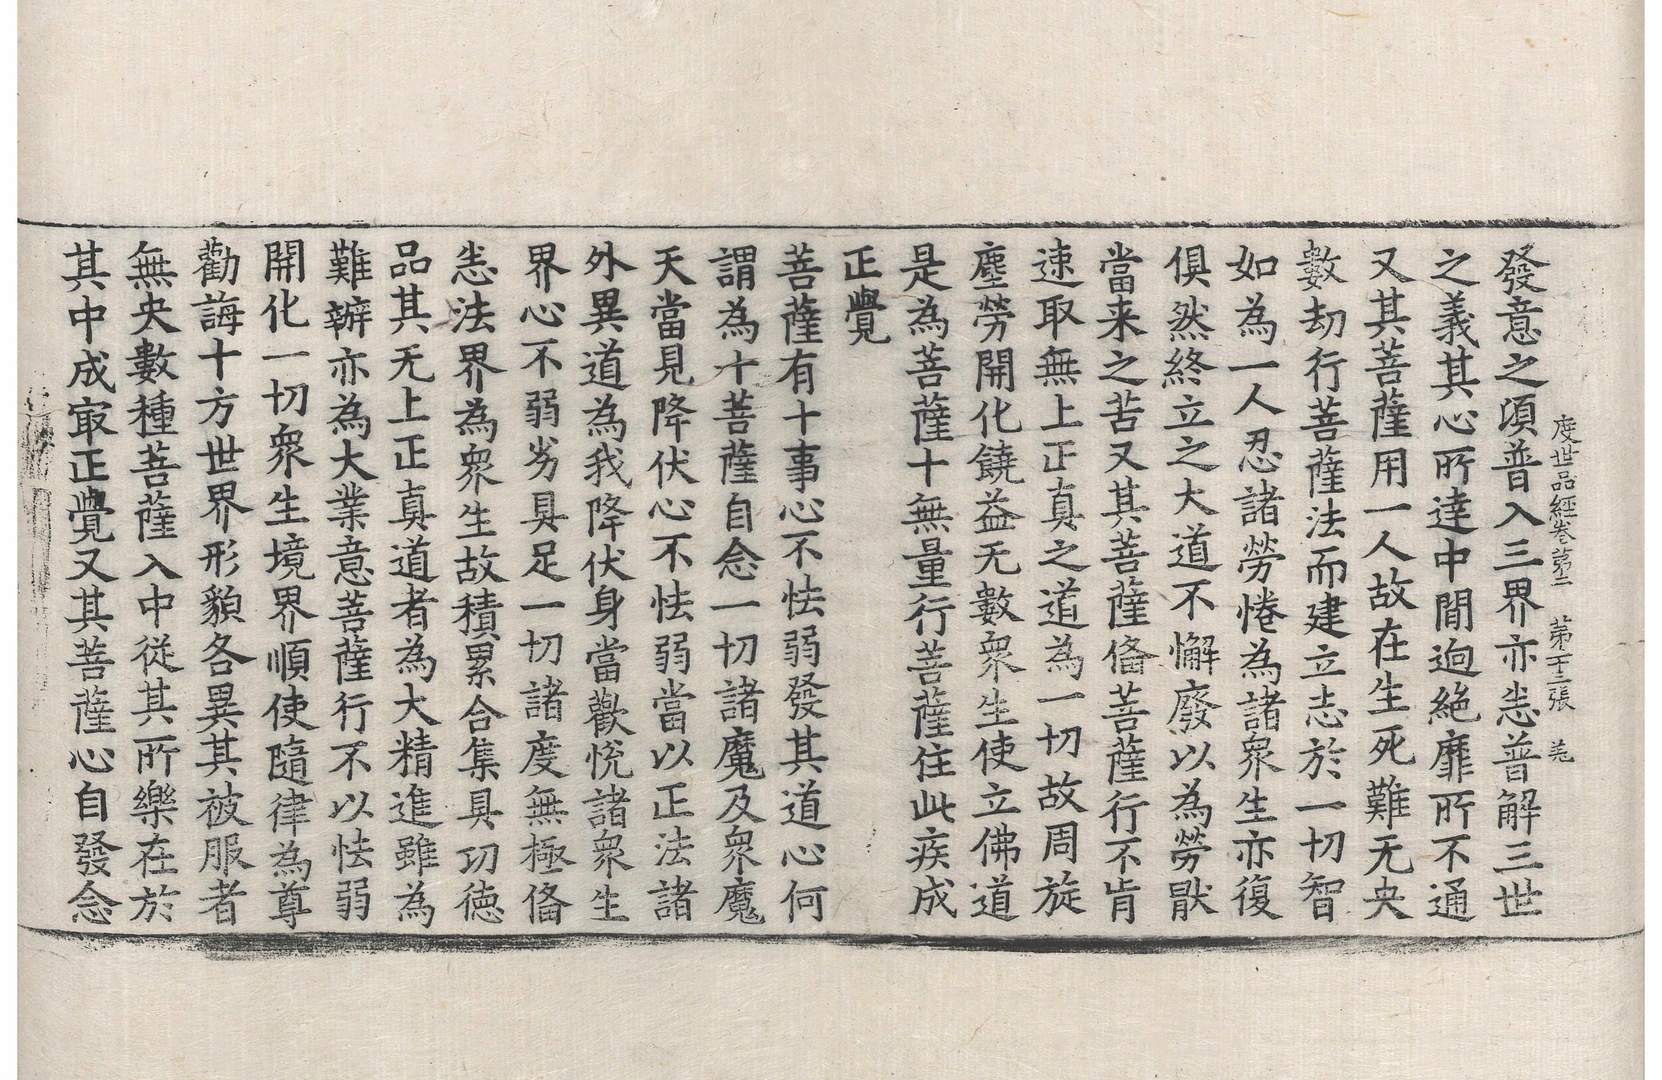 度世品經卷第二　第二十三張　羌
發意之頃普入三界亦悉普解三世
之義其心所達中間逈絕靡所不通
又其菩薩用一人故在生死難无央
數劫行菩薩法而建立志於一切智
如為一人忍諸勞惓為諸衆生亦復
俱然終立之大道不懈廢以為勞猒
當来之苦又其菩薩俻菩薩行不肯
速取無上正真之道為一切故周旋
塵勞開化饒益无數衆生使立佛道
是為菩薩十無量行菩薩住此疾成
正覺
菩薩有十事心不怯弱發其道心何
謂為十菩薩自念一切諸魔及衆魔
天當見降伏心不怯弱當以正法諸
外異道為我降伏身當歡悅諸衆生
界心不弱劣具足一切諸度無極俻
悉法界為衆生故積累合集具功徳
品其无上正真道者為大精進雖為
難辦亦為大業意菩薩行不以怯弱
開化一切衆生境界順使隨律為尊
勸誨十方世界形貌各異其被服者
無央數種菩薩入中從其所樂在於
其中成㝡正覺又其菩薩心自發念